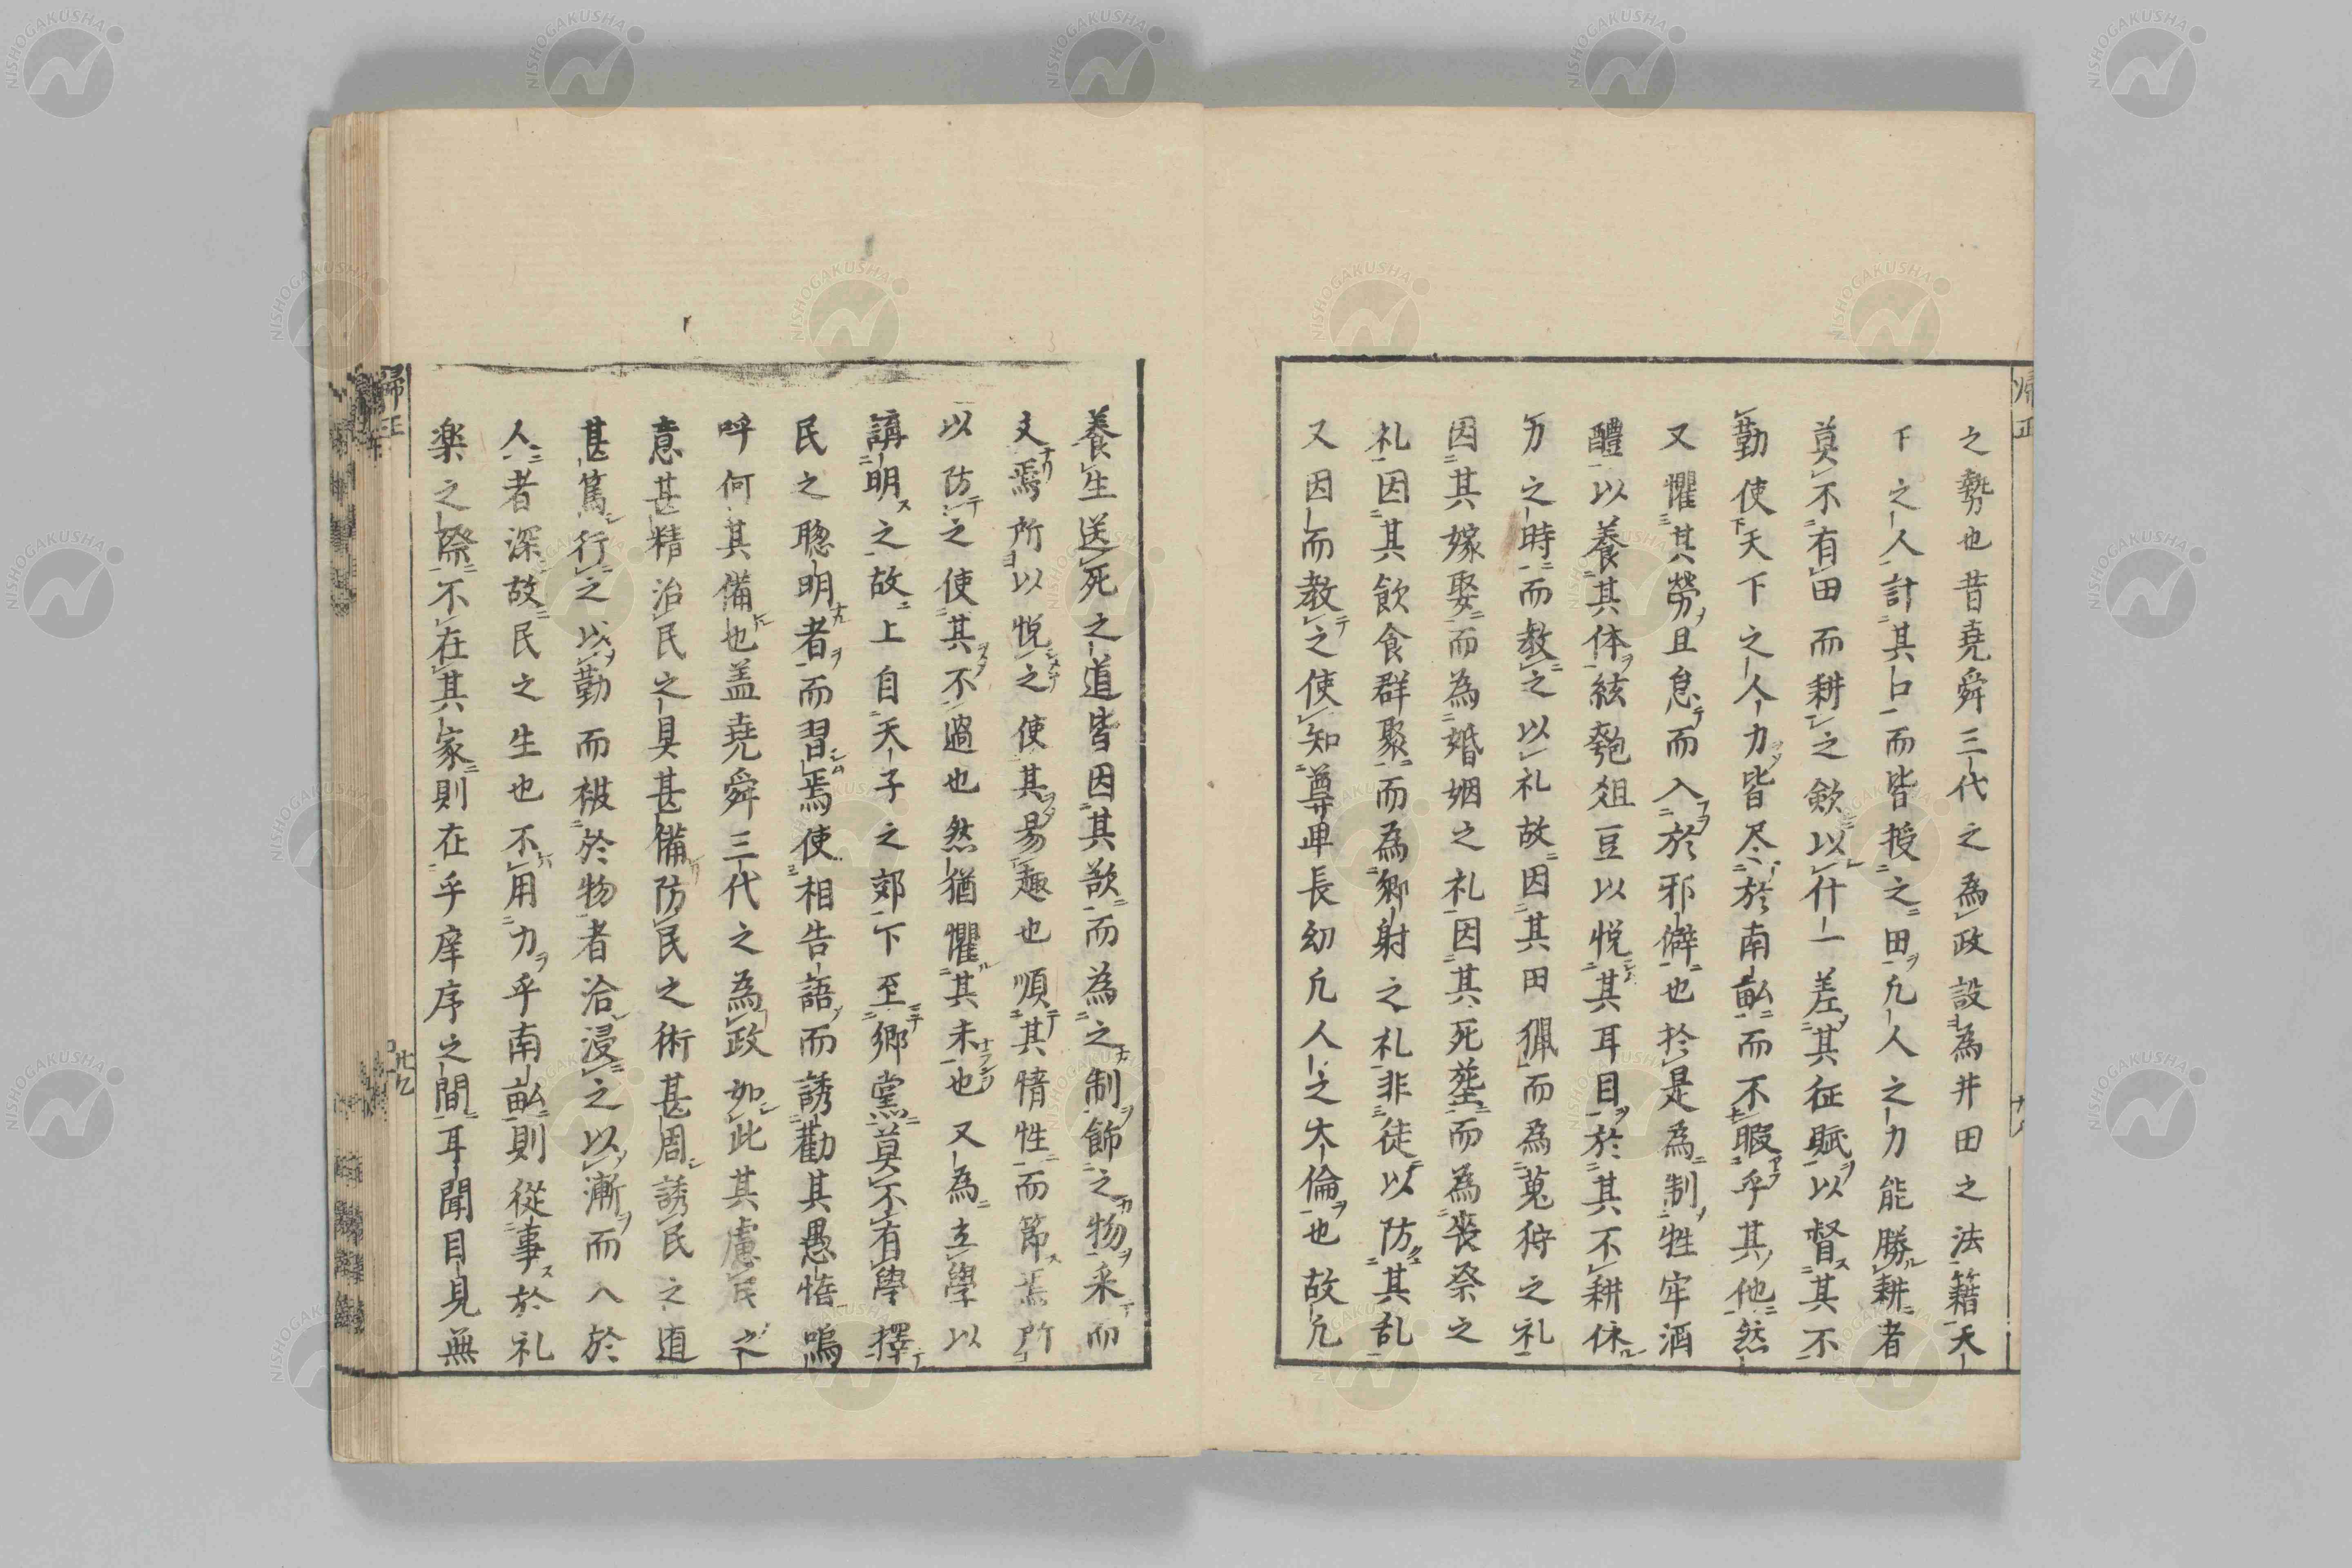 之勢也昔堯舜三代之為政設為井田之法籍天
下之人計其口而皆授之田凢人之力能勝耕者
莫不有田而耕之歛以什一差其征賦以督其不
勤使天下之人力皆尽於南畝而不暇乎其他然
又懼其勞且怠而入於邪僻也於是為制牲牢酒
醴以養其体絃匏俎豆以悦其耳目於其不耕休
力之時而教之以礼故因其田猟而為蒐狩之礼
因其嫁娶而為婚姻之礼因其死塟而為喪祭之
礼因其飲食群聚而為郷射之礼非徒以防其乱
又因而教之使知尊卑長幼凢人之大倫也故凢
養生送死之道皆因其欲而為之制飾之物采而
文焉所以悦之使其易趣也順其情性而節焉所
以防之使其不過也然猶懼其未也又為立學以
講明之故上自天子之郊下至郷黨莫不有學擇
民之聰明者而習焉使相告語而誘勸其愚惰嗚
呼何其備也盖堯舜三代之為政如此其慮民之
意甚精治民之具甚備防民之術甚周誘民之道
甚篤行之以勤而被於物者洽浸之以漸而入於
人者深故民之生也不用力乎南畝則從事於礼
楽之際不在其家則在乎庠序之間耳聞目見無
歸正
NISHOGAKUSHA